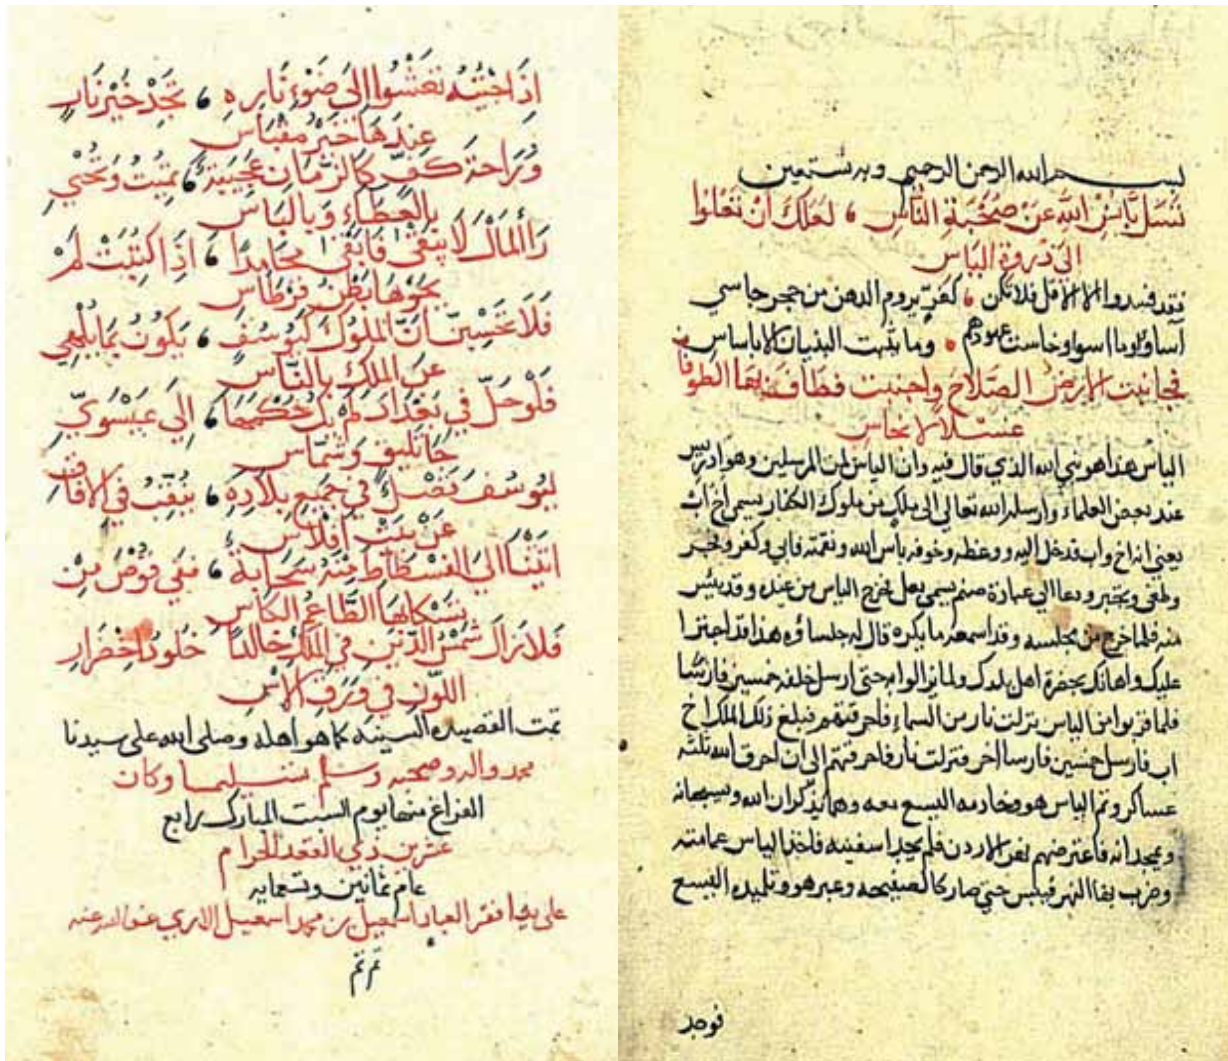 بسم الله الرحمن الرحيم وبه نستعين
تسل بأس الله عن صحبة الناس لعلك ان تعلوا
الى ذروة الياس
اساؤا وما اسوا وخاست عهودهم وما يثبت البنيان الا باساس
فجانبت الارض الصلاح واجنبت فطاف بها الطوفان
الياس هذا هو نبي الله الذي قال فيه وان الياس لمن المرسلين وهو ادريس
عند بعض العلماء وارسله الله تعالى الى ملك من ملوك الكفار يسمى اخ اب
يعني انه اخ واب فدخل اليه ووعظه وخوفه بأس الله ونقمته فابى وكفر وتجبر
وطغى ودعا الى عبادة صنم يسمى بعل فخرج الياس من عنده وقد يئس
منه فلما خرج من مجلسه وقد اسمعه ما يكره قال له جلساؤه هذا قد اجترا
عليك واهانك بحضرة اهل بلدك ولم يزالوا به حتى ارسل خلفه خمسين فارسا
فلما قربوا من الياس نزلت نار من السماء فاحرقتهم فبلغ ذلك الملك اخ
اب فارسل خمسين فارسا اخر فنزلت نار فاحرقتهم الى ان احرق الله ثلثة
عساكر وتم الياس هو وخادمه اليسع معه وهما يذكران الله ويسبحانه
ويمجدانه فاعترضهم نهر الاردن فلم يجدا سفينه فاخذ الياس عمامته
وضرب بها النهر فيبس حتى صار كالصفيحه وعبر هو وتلميذه اليسع
فوجد
اذا جئته تعشوا الى ضوء ناره تجد خير نار
عندها خير مقباس
وراحة كف كالزمان عجيبة تميت وتحيي
بالعطاء وبالباس
رأ المال لا يبقى فابقى محامدا اذا اكتتبت لم
يحوها بطن قرطاس
فلا تحسبن ان الملوك كيوسف يكون بما يلهي
عن الملك بالناس
فلو حل في بغداد لم يك حكمها الى عيسوي
جاثليق وشماس
ليوسف فضل في جميع بلاده ينقب في الافاق
عن بيت افلاس
اتينا الى الفسطاط منه سحابة
سكانها الطاعم الكاس
فلا زال شمس الدين في الملك خالدا خلود اخضرار
اللون في ورق الاس
تمت القصيده السينيه كما هو اهله وصلى الله على سيدنا
محمد واله وصحبه وسلم تسليما وكان
الفراغ منها يوم السبت المبارك رابع
عشرين ذي القعد الحرام
عام ثمانين وتسعمايه
على يد افقر العباد اسمعيل بن محمد اسمعيل الازري عفى الله عنه
تم تم